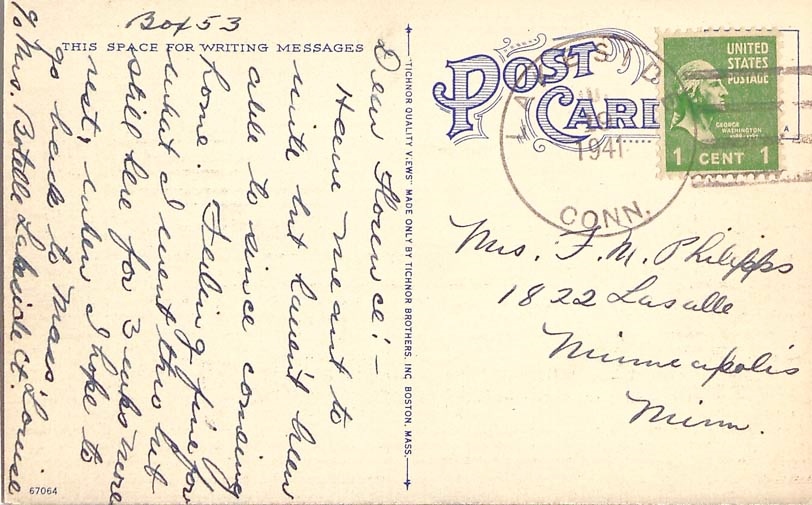 Box 53
THIS SPACE FOR WRITING MESSAGES
Dear Florence:—
Have meant to
write but haven't been
able to since coming
home. Feeling fine for
what I went thru but
still here for 3 wks more
rest, when I hope to
go back to Mass. Louise
℅ Mrs. Botelle Lakeside Ct.
67064
"TICHNOR QUALITY VIEWS" MADE ONLY BY TICHNOR BROTHERS, INC. BOSTON, MASS.
POST
CARD
LAKESIDE
10
1941
CONN.
UNITED
STATES
POSTAGE
GEORGE
WASHINGTON
1 CENT 1
Mrs. F. M. Philipps
1822 Lasalle
Minneapolis
Minn.